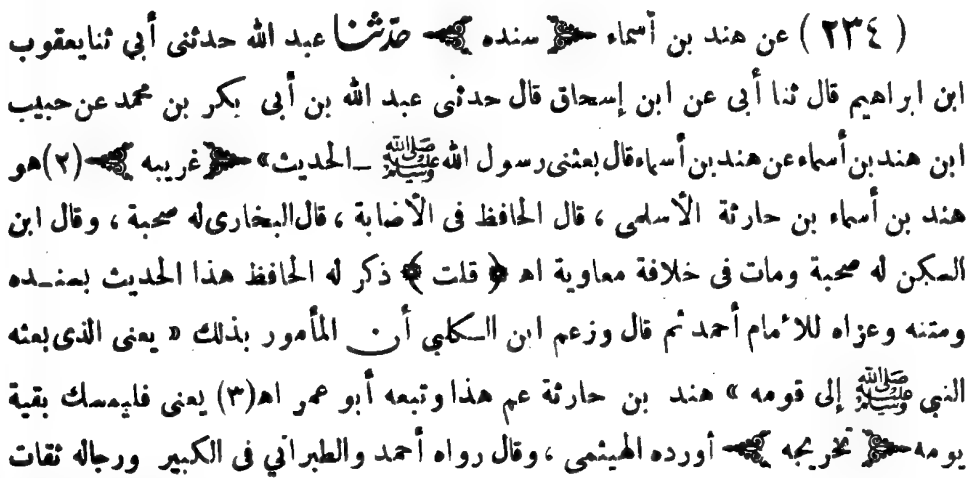 ( ٢٣٤ ) عن هند بن أسماء ﴿ سنده ﴾ حدّثنا عبد الله حدثنى أبي ثنا يعقوب
ابن ابراهيم قال ثنا أبى عن ابن إسحاق قال حدثنى عبد الله بن أبى بكر بن محمد عن حبيب
ابن هند بن أسماء عن هند بن أسماء قال بعثنى رسول الله ﷺ ـ الحديث» ﴿ غريبه ﴾ (٢) هو
هند بن أسماء بن حارثة الأسلمى ، قال الحافظ فى الأضابة ، قال البخارى له صحبة ، وقال ابن
السكن له صحبة ومات فى خلافة معاوية اه ﴿ قلت ﴾ ذكر له الحافظ هذا الحديث بسنـده
ومتنه وعزاه للأمام أحمد ثم قال وزعم ابن الـكلبي أن المأمور بذلك « يعنى الذى بعثه
النبي ﷺ إلى قومه » هند بن حارثة عم هذا وتبعه أبو عمر اه (٣) يعنى فليمسك بقية
يومه ﴿ تخريجه ﴾ أورده الهيثمى ، وقال رواه أحمد والطبراني فى الكبير ورجاله ثقات